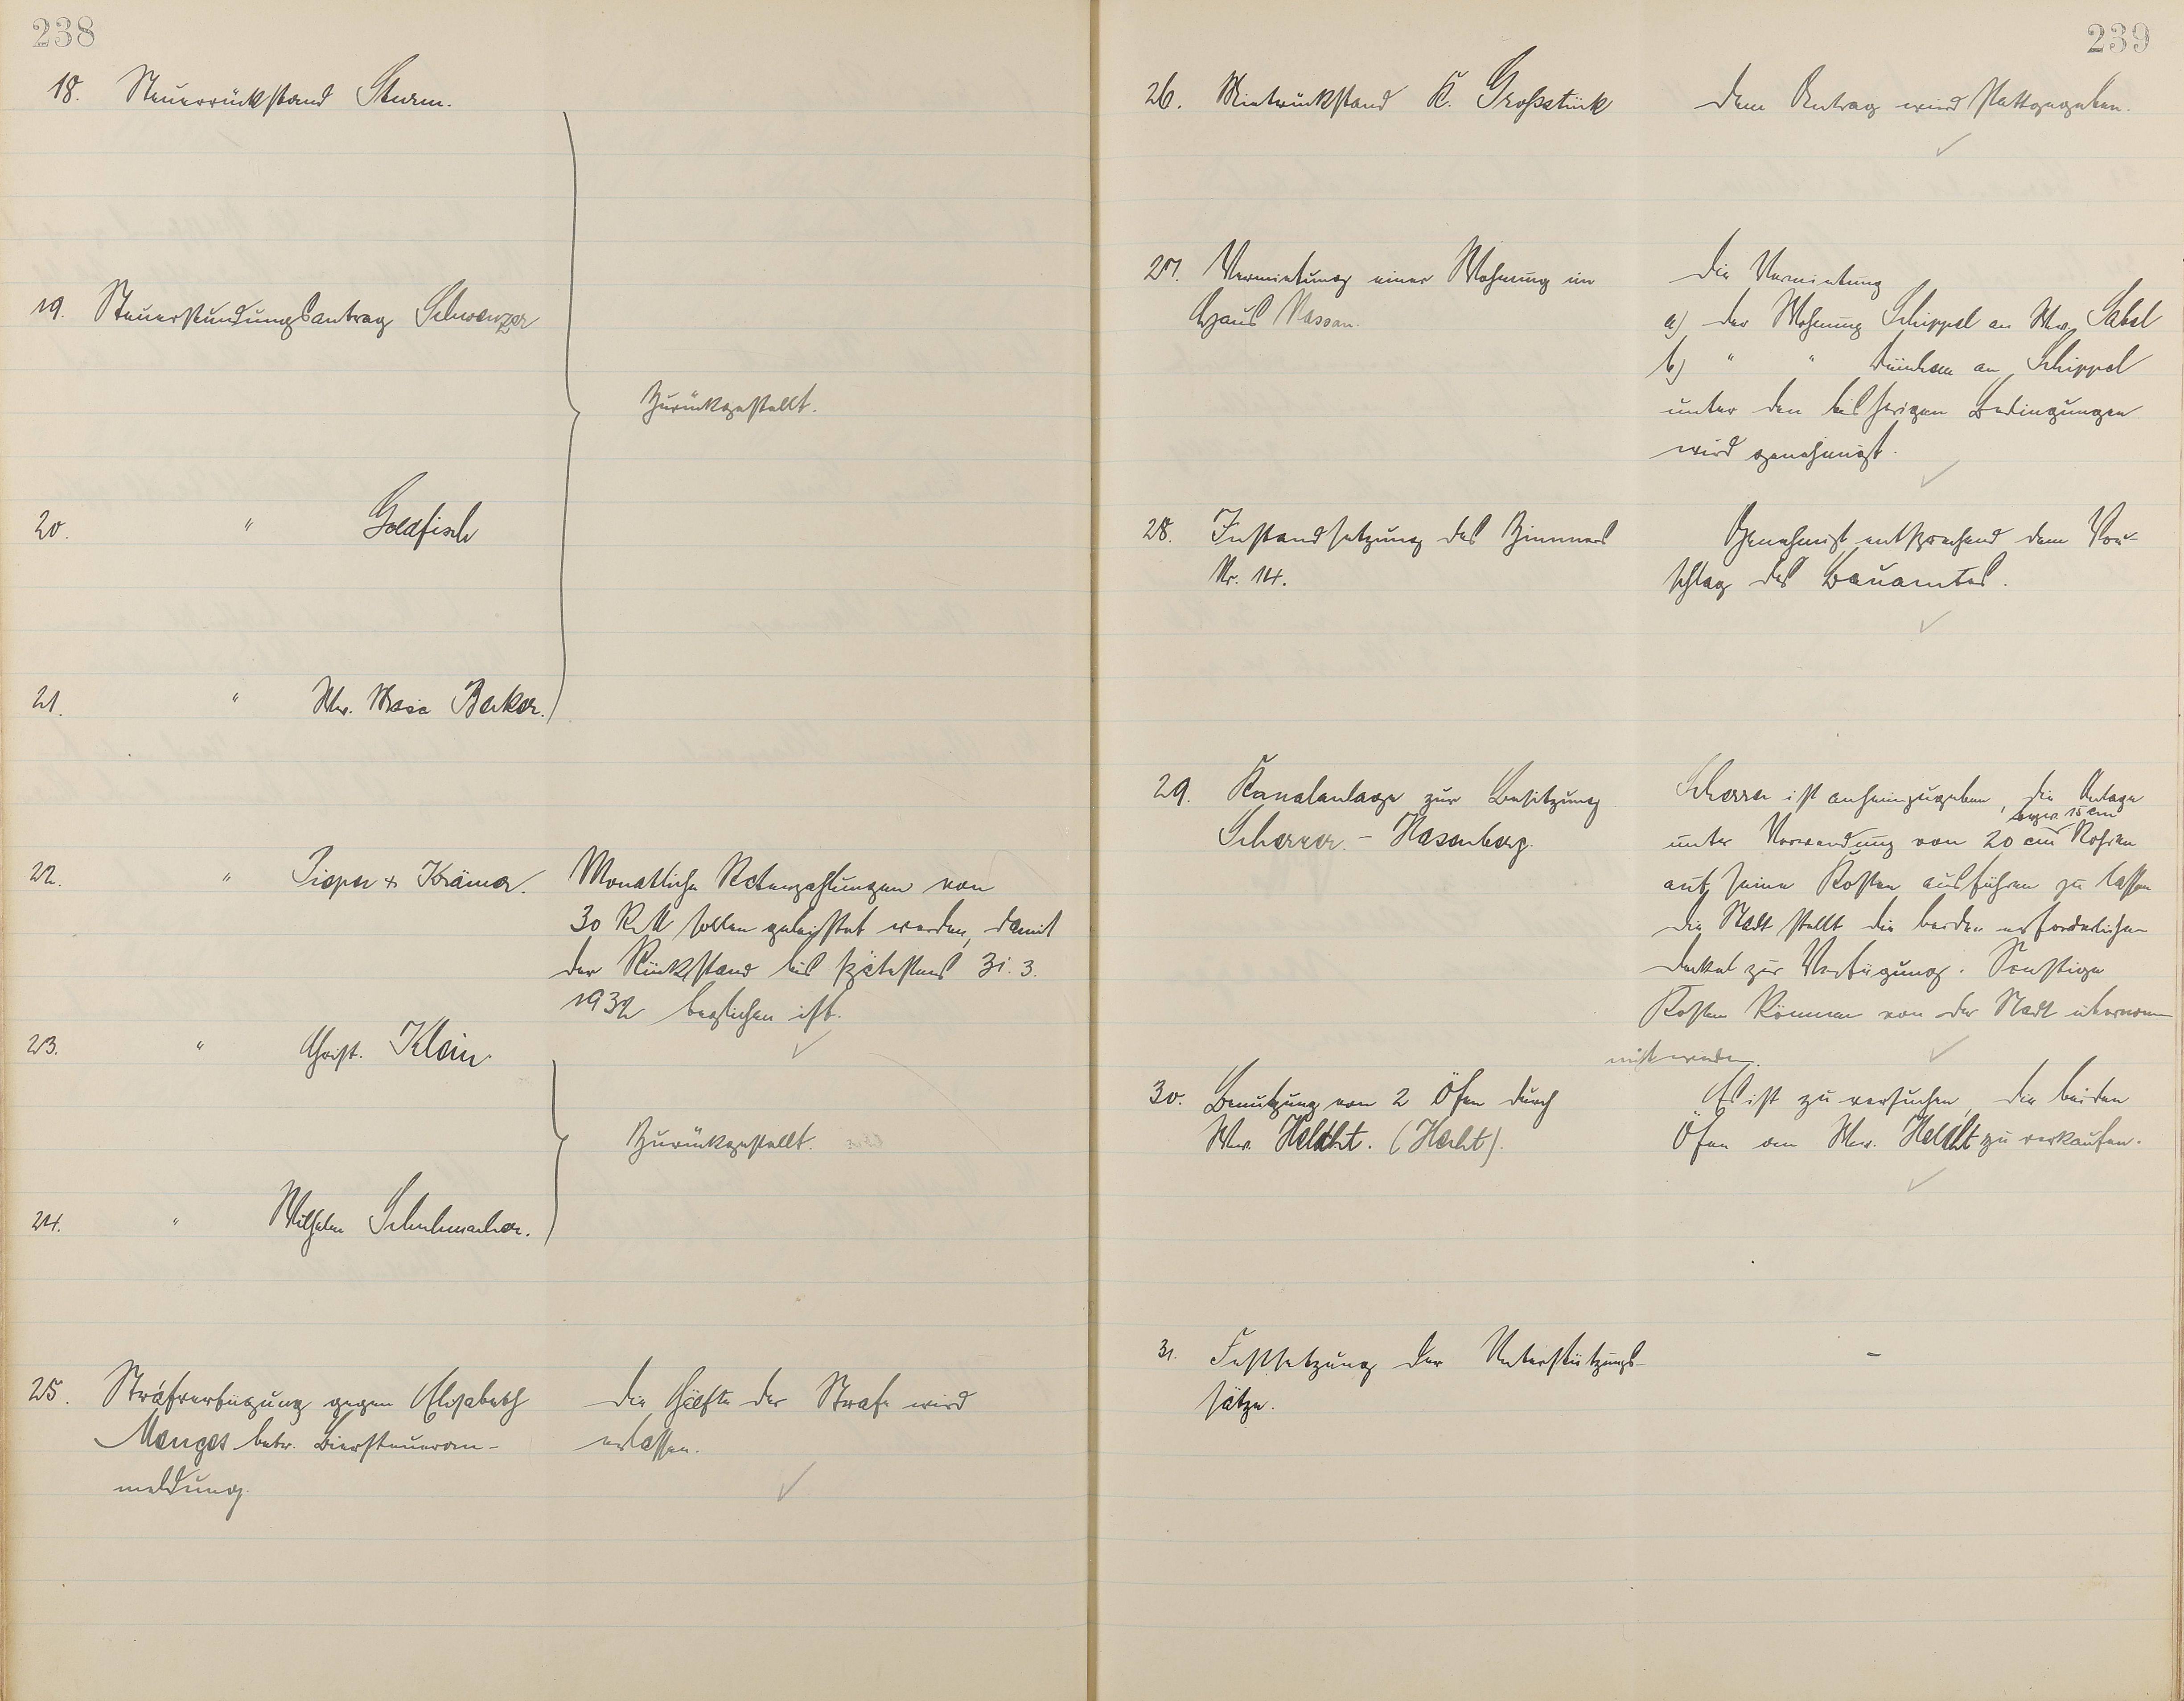 238
18. Steuerrückstand Sturm.
19. Steuerstundungsantrag Schwenzer
Zurückgestellt.
20. " Goldfisch
21. " Ww. Maria Becker.
22. " Pieper & Krämer.
Monatliche Ratenzahlungen von
30 RM sollen geleistet werden, damit
der Rückstand bis spätestens 31.3.
1932 beglichen ist.
23. " Christ. Klein
Zurückgestellt.
24. " Wilhelm Schuhmacher.
25. Strafverfügung gegen Elisabeth
Menges betr. Biersteueran-
meldung
Die Hälfte der Strafe wird
erlassen.
239
26. Mietrückstand K. Großstück
Dem Antrag wird stattgegeben.
27. Vermietung einer Wohnung im
Haus Nassau.
Die Vermietung
a) der Wohnung Schippel an Ww. Sabel
b) " " an Schippel
unter den bisherigen Bedingungen
wird genehmigt.
28. Instandsetzung des Zimmers
Nr. 14.
Genehmigt entsprechend dem Vor-
schlag des Bauamtes.
29. Kanalanlage zur Besitzung
Scherrer. - Hasenberg.
Scherrer ist anheimzugeben, die Anlage
15 cm
unter Verwendung von 20 cm Rohren
auf seine Kosten ausführen zu lassen
die Stadt stellt die beiden erforderlichen
Deckel zur Verfügung. Sonstige
Kosten können von der Stadt übernom
nicht werden.
30. Benutzung von 2 Öfen durch
Ww. Heldt. (Hecht).
Es ist zu versuchen, die beiden
Öfen an Ww. Heldt zu verkaufen.
31. Festsetzung der Unterstützungs-
sätze.
-